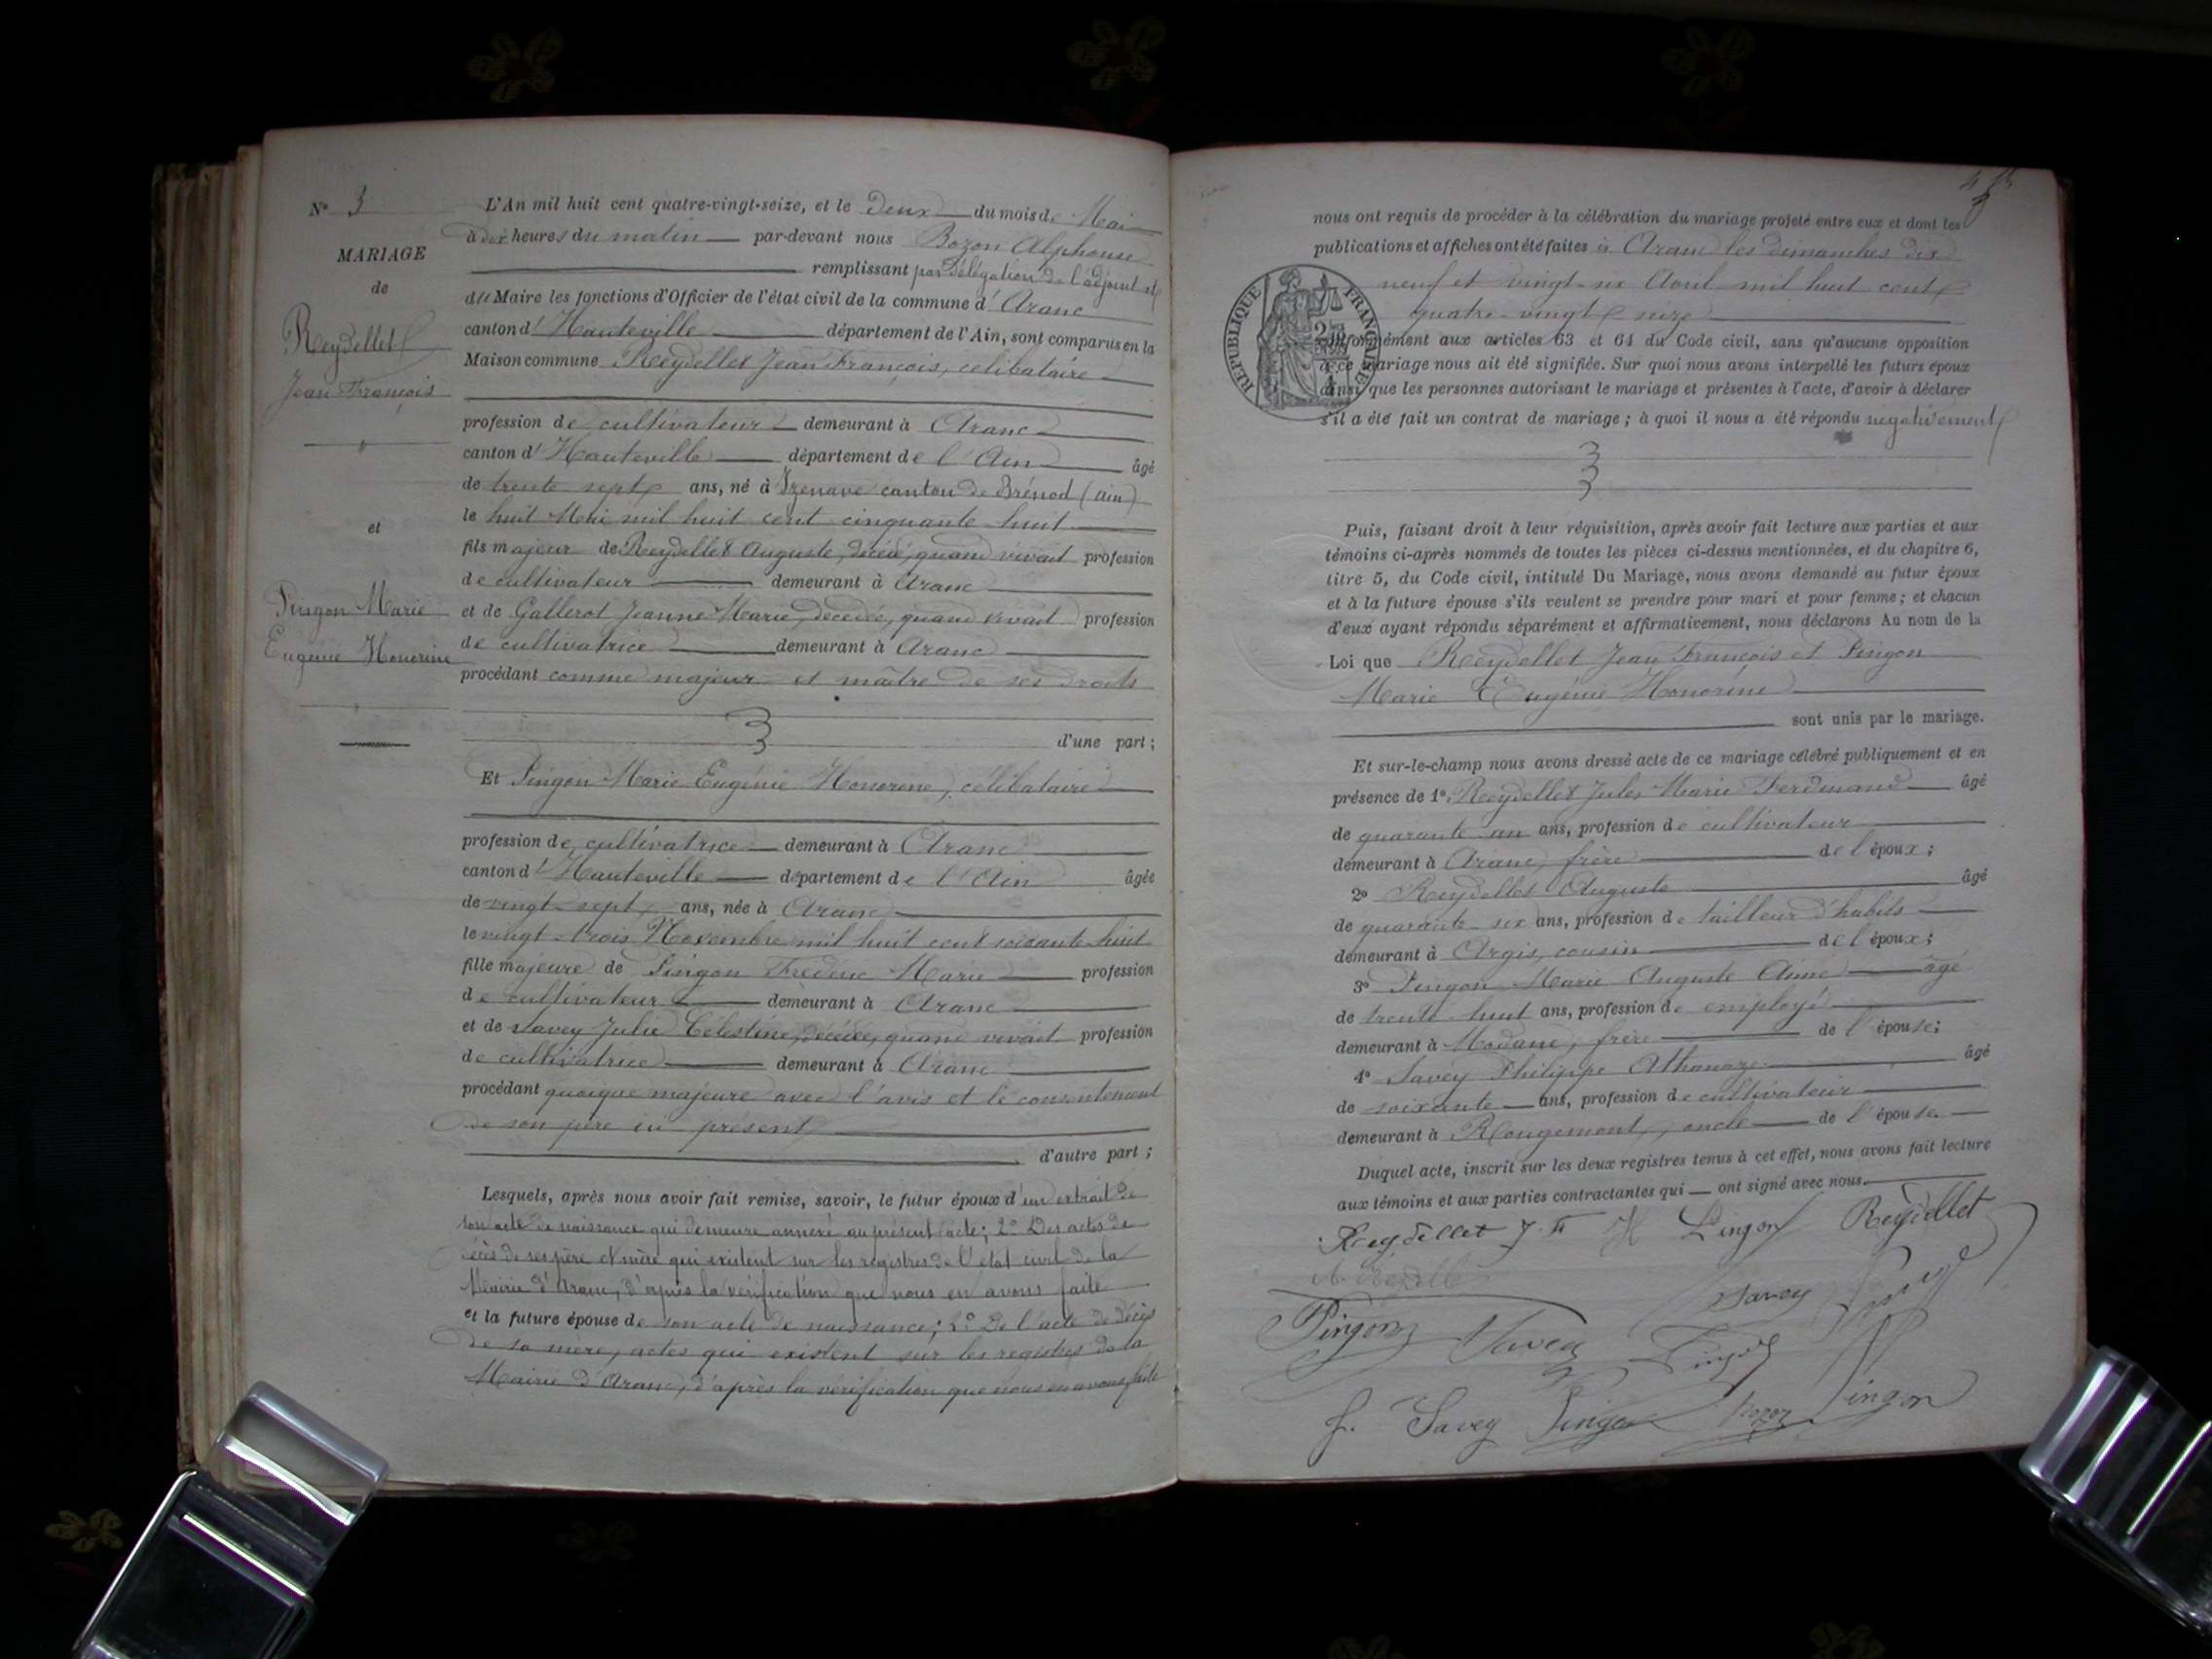 N° 3
MARIAGE
de
Reydellet
Jean François
et
Pingon Marie
Eugénie Honorine
L'An mil huit cent quatre-vingt-seize, et le deux du mois de Mai
à dix heures du matin par-devant nous Bozon Alphonse
remplissant par délégation de l'adjoint et
du Maire les fonctions d'Officier de l'état civil de la commune d'Aranc
canton d'Hauteville département de l'Ain, sont comparus en la
Maison commune Reydellet Jean François, célibataire
profession de cultivateur demeurant à Aranc
canton d'Hauteville département de l'Ain âgé
de trente sept ans, né à Izenave canton de Brénod (Ain)
le huit Mai mil huit cent cinquante-huit
fils majeur de Reydellet Auguste, décédé, quand vivait profession
de cultivateur demeurant à Aranc
et de Gallerot Jeanne-Marie, décédée, quand vivait profession
de cultivatrice demeurant à Aranc
procédant comme majeur et maître de ses droits
d'une part ;
Et Pingon Marie Eugénie Honorine, célibataire
profession de cultivatrice demeurant à Aranc
canton d'Hauteville département de l'Ain âgée
de vingt-sept ans, née à Aranc
le vingt-trois Novembre mil huit cent soixante-huit
fille majeure de Pingon Frédéric Marie profession
de cultivateur demeurant à Aranc
et de Savey Julie Célestine, décédée, quand vivait profession
de cultivatrice demeurant à Aranc
procédant quoique majeure avec l'avis et le consentement
de son père ici présent
d'autre part ;
Lesquels, après nous avoir fait remise, savoir, le futur époux d'un extrait de
son acte de naissance qui demeure annexé au présent acte; 2° Des actes de
décès de ses père et mère qui existent sur les registres de l'état civil de la
Mairie d'Aranc, d'après la vérification que nous en avons faite
et la future épouse de son acte de naissance; 2° De l'acte de décès
de sa mère, actes qui existent sur les registres de la
Mairie d'Aranc, d'après la vérification que nous en avons faite
nous ont requis de procéder à la célébration du mariage projeté entre eux et dont les
publications et affiches ont été faites à Aranc les dimanches dix
neuf et vingt-six Avril mil huit cent
quatre-vingt seize
RÉPUBLIQUE FRANÇAISE
conformément aux articles 63 et 64 du Code civil, sans qu'aucune opposition
à ce mariage nous ait été signifiée. Sur quoi nous avons interpellé les futurs époux
ainsi que les personnes autorisant le mariage et présentes à l'acte, d'avoir à déclarer
s'il a été fait un contrat de mariage ; à quoi il nous a été répondu négativement
Puis, faisant droit à leur réquisition, après avoir fait lecture aux parties et aux
témoins ci-après nommés de toutes les pièces ci-dessus mentionnées, et du chapitre 6,
titre 5, du Code civil, intitulé Du Mariage, nous avons demandé au futur époux
et à la future épouse s'ils veulent se prendre pour mari et pour femme ; et chacun
d'eux ayant répondu séparément et affirmativement, nous déclarons Au nom de la
Loi que Reydellet Jean François et Pingon
Marie Eugénie Honorine
sont unis par le mariage.
Et sur-le-champ nous avons dressé acte de ce mariage célébré publiquement et en
présence de 1° Reydellet Jules Marie Ferdinand âgé
de quarante-un ans, profession de cultivateur
demeurant à Aranc, frère de l'époux ;
2° Reydellet Auguste âgé
de quarante-six ans, profession de tailleur d'habits
demeurant à Argis, cousin de l'époux ;
3° Pingon Marie Auguste Aimé âgé
de trente-huit ans, profession de employé
demeurant à Modane, frère de l'épouse;
4° Savey Philippe Athanaze âgé
de soixante ans, profession de cultivateur
demeurant à Rougemont, oncle de l'épouse.
Duquel acte, inscrit sur les deux registres tenus à cet effet, nous avons fait lecture
aux témoins et aux parties contractantes qui ont signé avec nous.
Reydellet J. F. H Pingon Reydellet
Savey
Pingon Savey Pingon
Savey Pingon Bozon Pingon